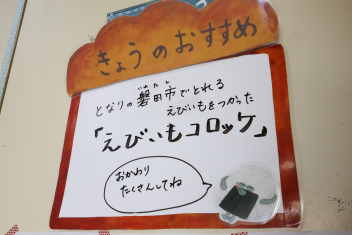 きょうのおすすめ
いわたし
となりの磐田市でとれる
えびいもをつかった
「えびいもコロッケ」
おかわり
たくさんしてね